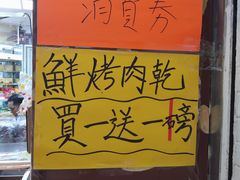 消費券
鮮烤肉乾
買一送一磅